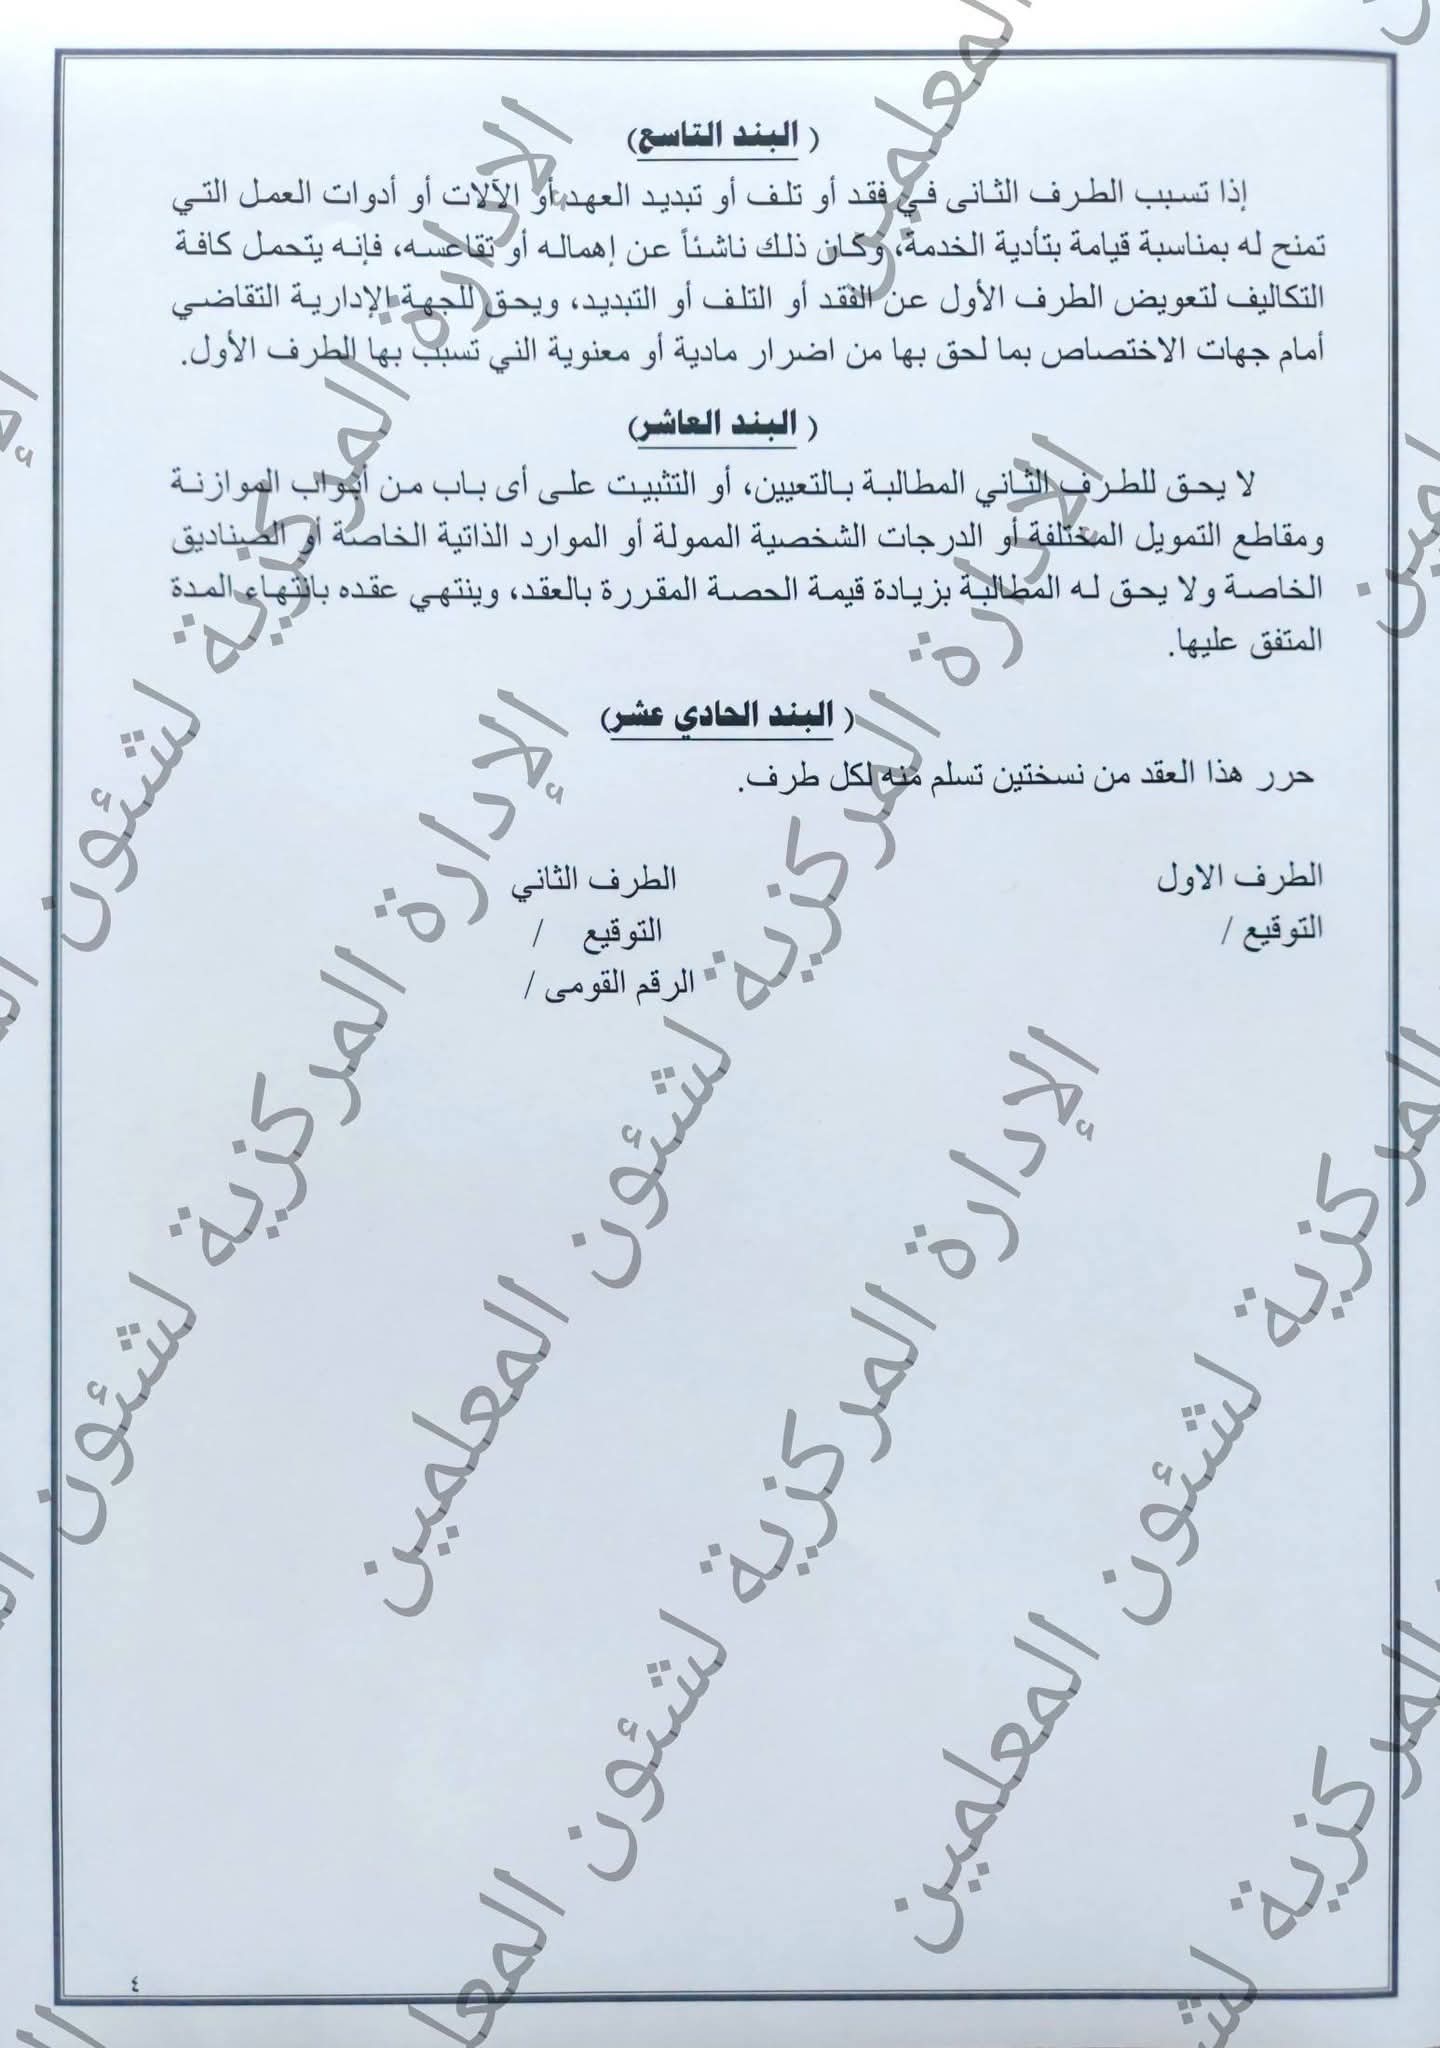 ( البند التاسع)
إذا تسبب الطرف الثانى في فقد أو تلف أو تبديد العهد أو الآلات أو أدوات العمل التي
تمنح له بمناسبة قيامة بتأدية الخدمة، وكان ذلك ناشئاً عن إهماله أو تقاعسه، فإنه يتحمل كافة
التكاليف لتعويض الطرف الأول عن الفقد أو التلف أو التبديد، ويحق للجهة الإدارية التقاضي
أمام جهات الاختصاص بما لحق بها من اضرار مادية أو معنوية التي تسبب بها الطرف الأول.
( البند العاشر)
لا يحق للطرف الثاني المطالبة بالتعيين، أو التثبيت على أى باب من أبواب الموازنة
ومقاطع التمويل المختلفة أو الدرجات الشخصية الممولة أو الموارد الذاتية الخاصة أو الصناديق
الخاصة ولا يحق له المطالبة بزيادة قيمة الحصة المقررة بالعقد، وينتهي عقده بانتهاء المدة
المتفق عليها.
( البند الحادي عشر)
حرر هذا العقد من نسختين تسلم منه لكل طرف.
الطرف الاول
الطرف الثاني
التوقيع /
التوقيع /
الرقم القومى /
٤
الإدارة المركزية لشئون المعلمين
الإدارة المركزية لشئون المعلمين
الإدارة المركزية لشئون المعلمين